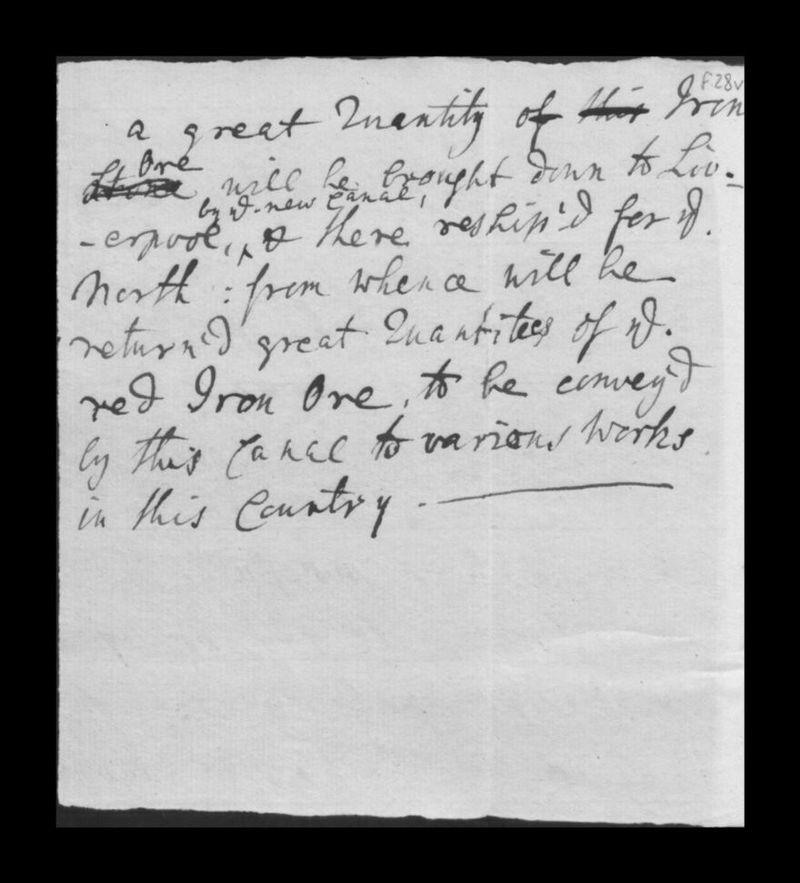 F.28v
a great Quantity of this Iron
Stone Ore will be brought down to Liv-
by ye. new Canal,
-erpool, ^ & there reship'd for ye.
North: from whence will be
return'd great Quantitees of ye.
red Iron Ore, to be convey'd
by this Canal to various Works
in this Country.